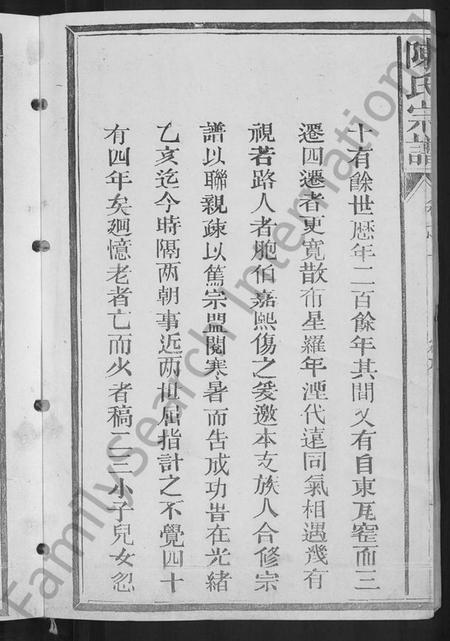 陳氏宗譜
十有餘世歴年二百餘年其間又有自東瓦窑而三
遷四遷者更寛散布星羅年湮代遠同氣相遇幾有
視若路人者胞伯嘉熙傷之爰邀本支族人合修宗
譜以聯親疎以篤宗盟閱寒暑而告成功昔在光緒
乙亥迄今時隔兩朝事近兩世屈指計之不覺四十
有四年矣廻憶老者亡而少者稿二三小子兒女忽
FamilySearch International